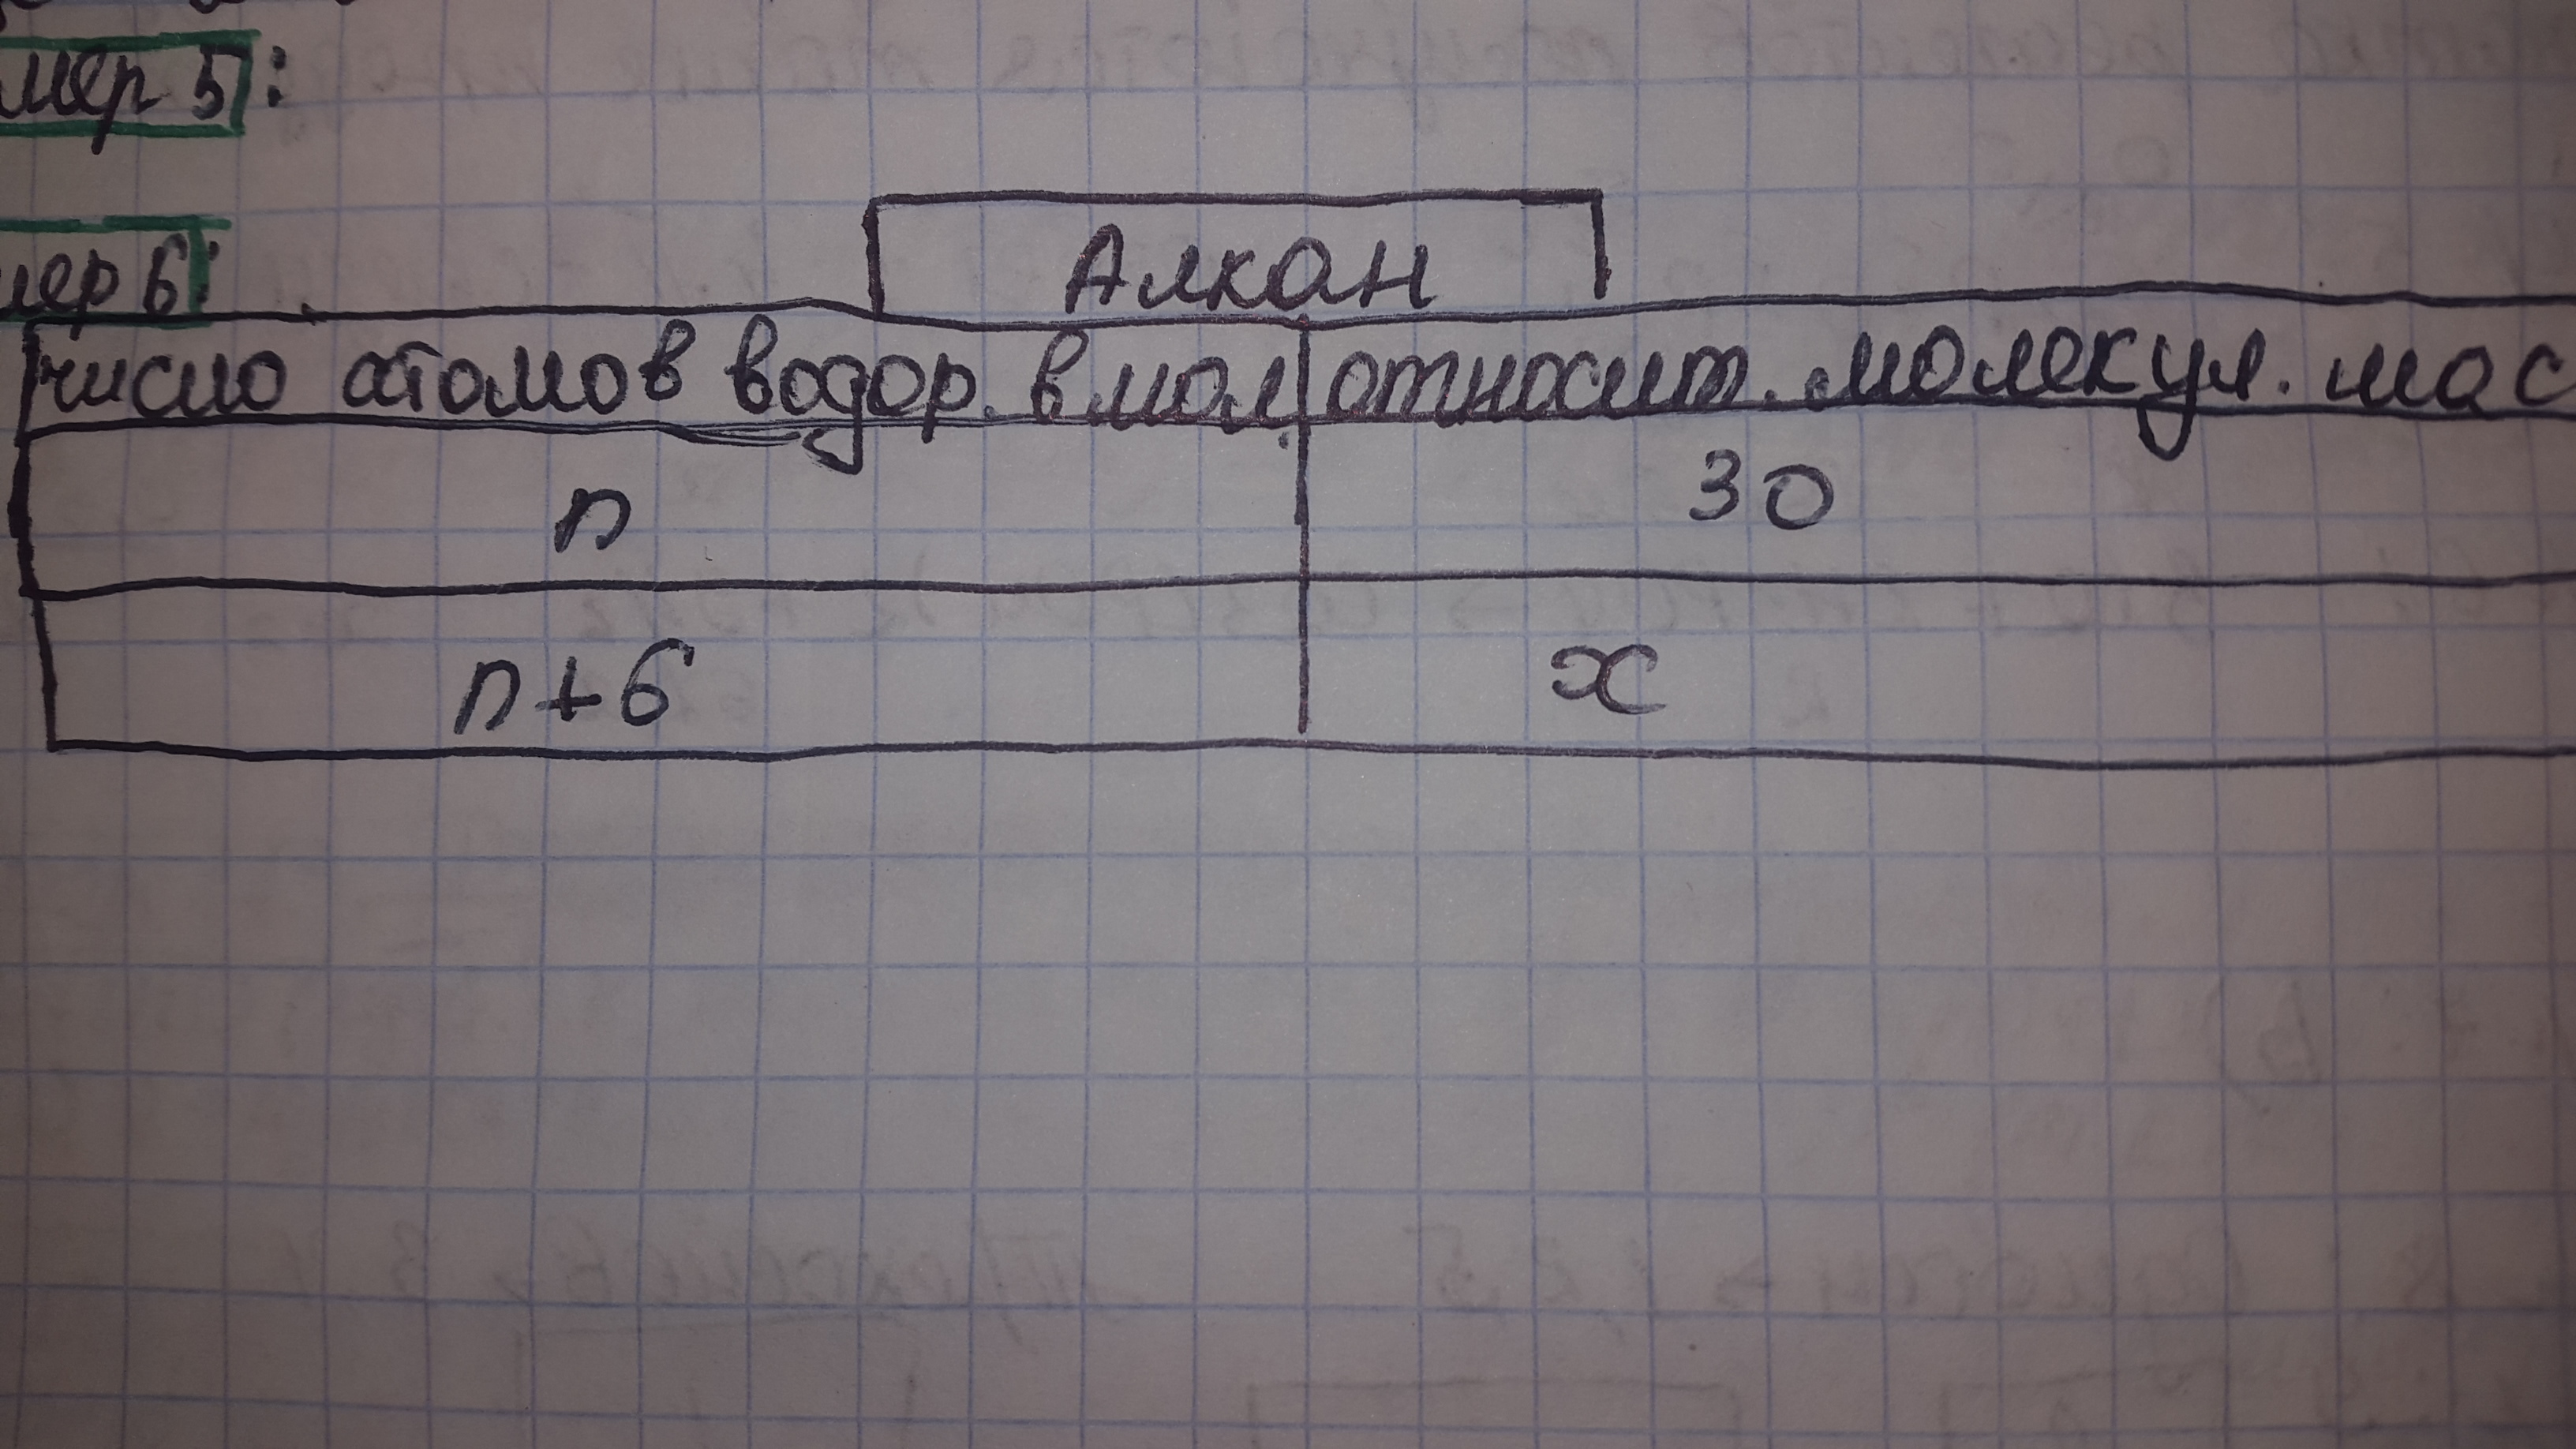 мер 5:
мер 6:
Алкан
число атомов водор. в мол. относит. молекул. мас
n 30
n+6 x